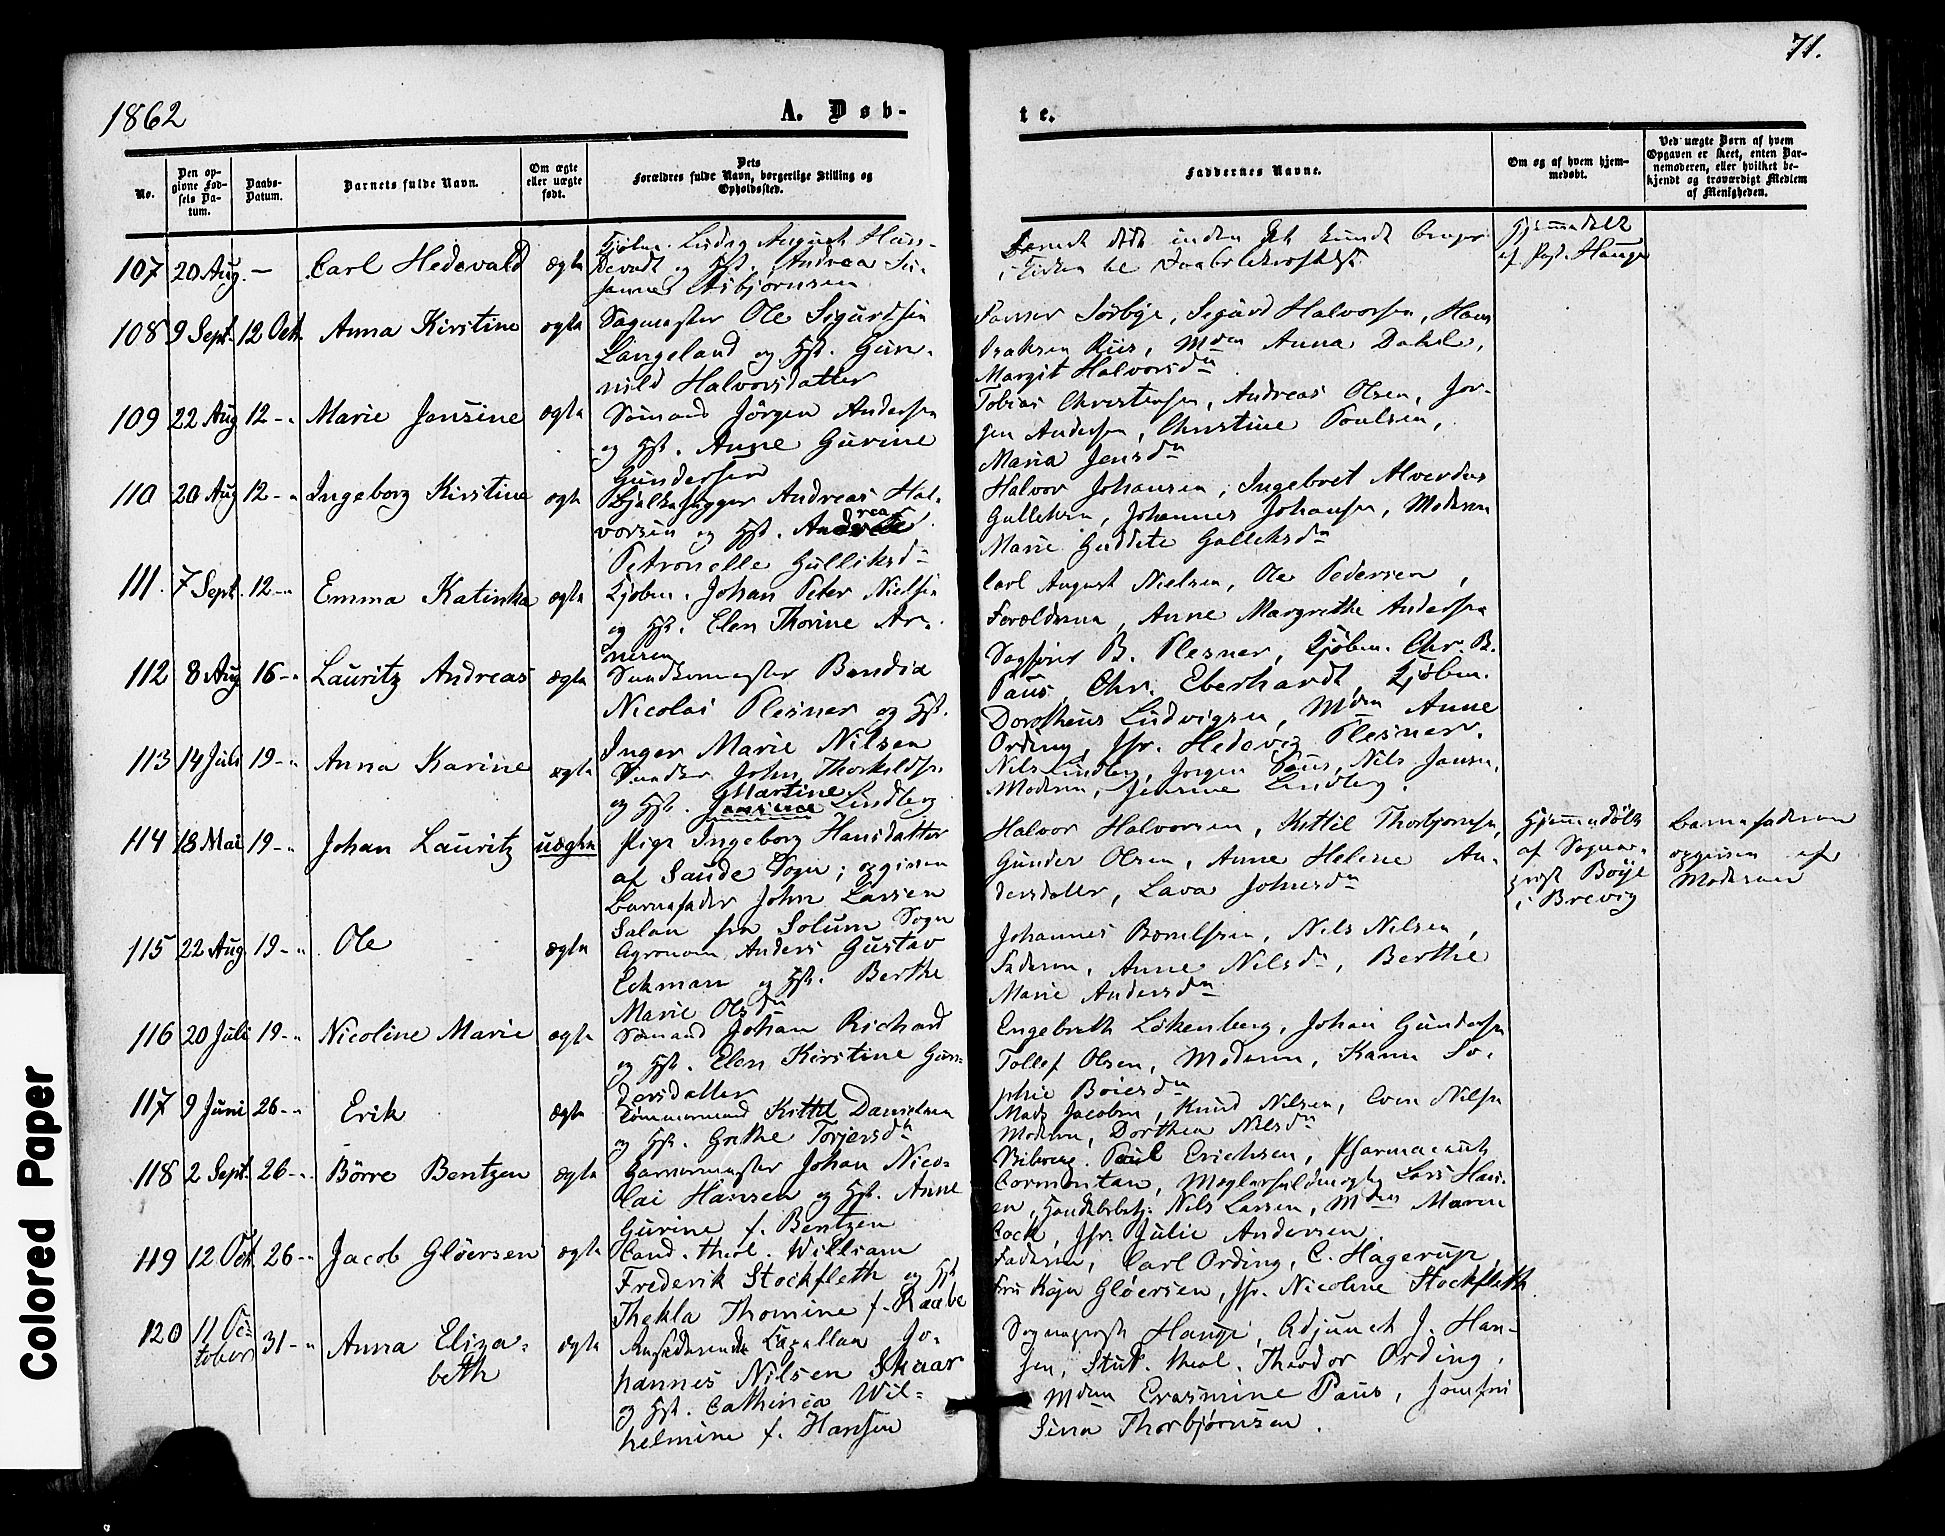 71.
1862
A. Døb-
te.
No.
Den op-
givne Fød-
sels Da-
tum.
Daabs-
Datum.
Barnets fulde Navn.
Om ægte
eller uægte
født.
Dets
Forældres fulde Navn, borgerlige Stilling og
Opholdssted.
Faddernes Navne.
Om og af hvem hjem-
medøbt.
Ved uægte Børn af hvem
Opgaven er skeet, enten Bar-
nemoderen, eller hvilket be-
kjendt og troværdigt Medlem
af Menigheden.
107 20 Aug. — Carl Hedevald ægte
Kjøbm. August
og Hst. Andrea Su-
sanne Asbjørnsen
Barnet døde inden det kunde bringes
i Kirken
Hjemmedøbt
af Hauge
108 9 Sept. 12 Oct. Anna Kirstine ægte
Sagmester Ole Sigurdsen
Langeland og Hst. Gun-
nild Halvorsdatter
Sörbye, Sigurd Halvorsen, Hans
Isaksen Riis, Mdm Anna Dahl,
Margit Halvorsdn
109 22 Aug 12 -" Marie Jensine ægte
Sömand Jörgen Andersen
og Hst. Anne Gurine
Gundersen
Tobias Christensen, Andreas Olsen, Jör-
gen Andersen, Christine Poulsen,
Maria Jensdn
110 20 Aug 12 -" Ingeborg Kirstine ægte
Bjelkehugger Andreas Hal-
vorsen og Hst. Andrea
Petronelle Gulliksd-
Halvor Johansen, Ingebret
Gulleksen, Johannes Johansen, Moderen
Marie Gulleksdn
111. 7 Sept. 12 -" Emma Katinka ægte
Kjöbm. Johan Peter Nielsen
og Hst. Elen Thorine Ar-
nesen
Carl August Nielsen, Ole Pedersen,
Forældrene, Anne Margrethe Andersen
112 8 Aug 16 -" Lauritz Andreas ægte
Smedkemester Bendix
Nicolai Plesner og Hst.
Inger Marie Nilsen
Sagfører B. Plesner, Kjöbm. Chr. B.
Paus, Chr. Eberhardt, Kjöbm.
Dorotheus Ludvigsen, Mdm Anne
Ording, Jfr. Hedevig Plesner.
113 14 Juli 19 -" Anna Karine ægte
John Thorkildsen
og Hst. Martine Lindberg
Nils Lindberg, Jørgen Paus, Nils Jansen,
Moderen, Jensine Lindberg.
114 18 Mai 19 -" Johan Lauritz uægte
Pige Ingeborg Hansdatter
af Saude Sogn; opgiven
Barnefader John Larsen
fra Solum Sogn
Halvor Halvorsen, Kittil Thorbjornsen,
Gunder Olsen, Anne Helene An-
dersdatter, Lava Johnsdn
Hjemmedöbt
af Sogne-
prest Böye
i Brevig
Barnefaderen
opgiven af
Moderen
115 22 Aug. 19 -" Ole ægte
Agronom Anders Gustav
Eckmann og Hst. Berthe
Marie Olsdn
Johannes Nils Nilsen,
Faderen, Anne Nilsdn, Berthe
Marie Andersdn
116 20 Juli 19 -" Nicoline Marie ægte
Sömand Johan Richard
og Hst. Elen Kirstine Gun-
dersdatter
Engebreth Lökenberg, Johan Gundersen
Tollef Olsen, Moderen, Karen So-
phie Boiesdn
117 9 Juni 26 -" Erik ægte
Tömmermand Kittil Danielsen
og Hst. Grethe Torjersdn
Mads Jacobsen, Knud Nilsen, Even Nilsen
Moderen, Dorthea Nilsdn
118 2 Sept. 26 -" Börre Bentzen ægte
Garvermester Johan Nico-
lai Hansen og Hst. Anne
Gurine f. Bentzen
Paul Erichsen, Pharmaceut
Cormontan, Meglerfuldmegtig Lars Han-
sen, Handelsbetj. Nils Larsen, Mdm Maren
Cock, Jfr. Julie Andersen.
119 12 Oct 26 -" Jacob Gløersen ægte
Cand. theol. William
Frederik Stockfleth og Hst
Thekla Thomine f. Raabe
Faderen, Carl Ording, C. Hagerup,
Fru Kaja Gløersen, Jfr. Nicoline Stockfleth.
120 11 Oc-
tober 31 -" Anna Eliza-
beth ægte
Residerende Capellan Jo-
hannes Nilsen Skaar
og Hst. Cathinca Wil-
helmine f. Hansen
Sogneprest Hauge, Adjunct J. Han-
sen, Stud. theol. Theodor Ording,
Mdm Erasmine Paus, Jomfru
Sina Thorbjørnsen.
Colored Paper